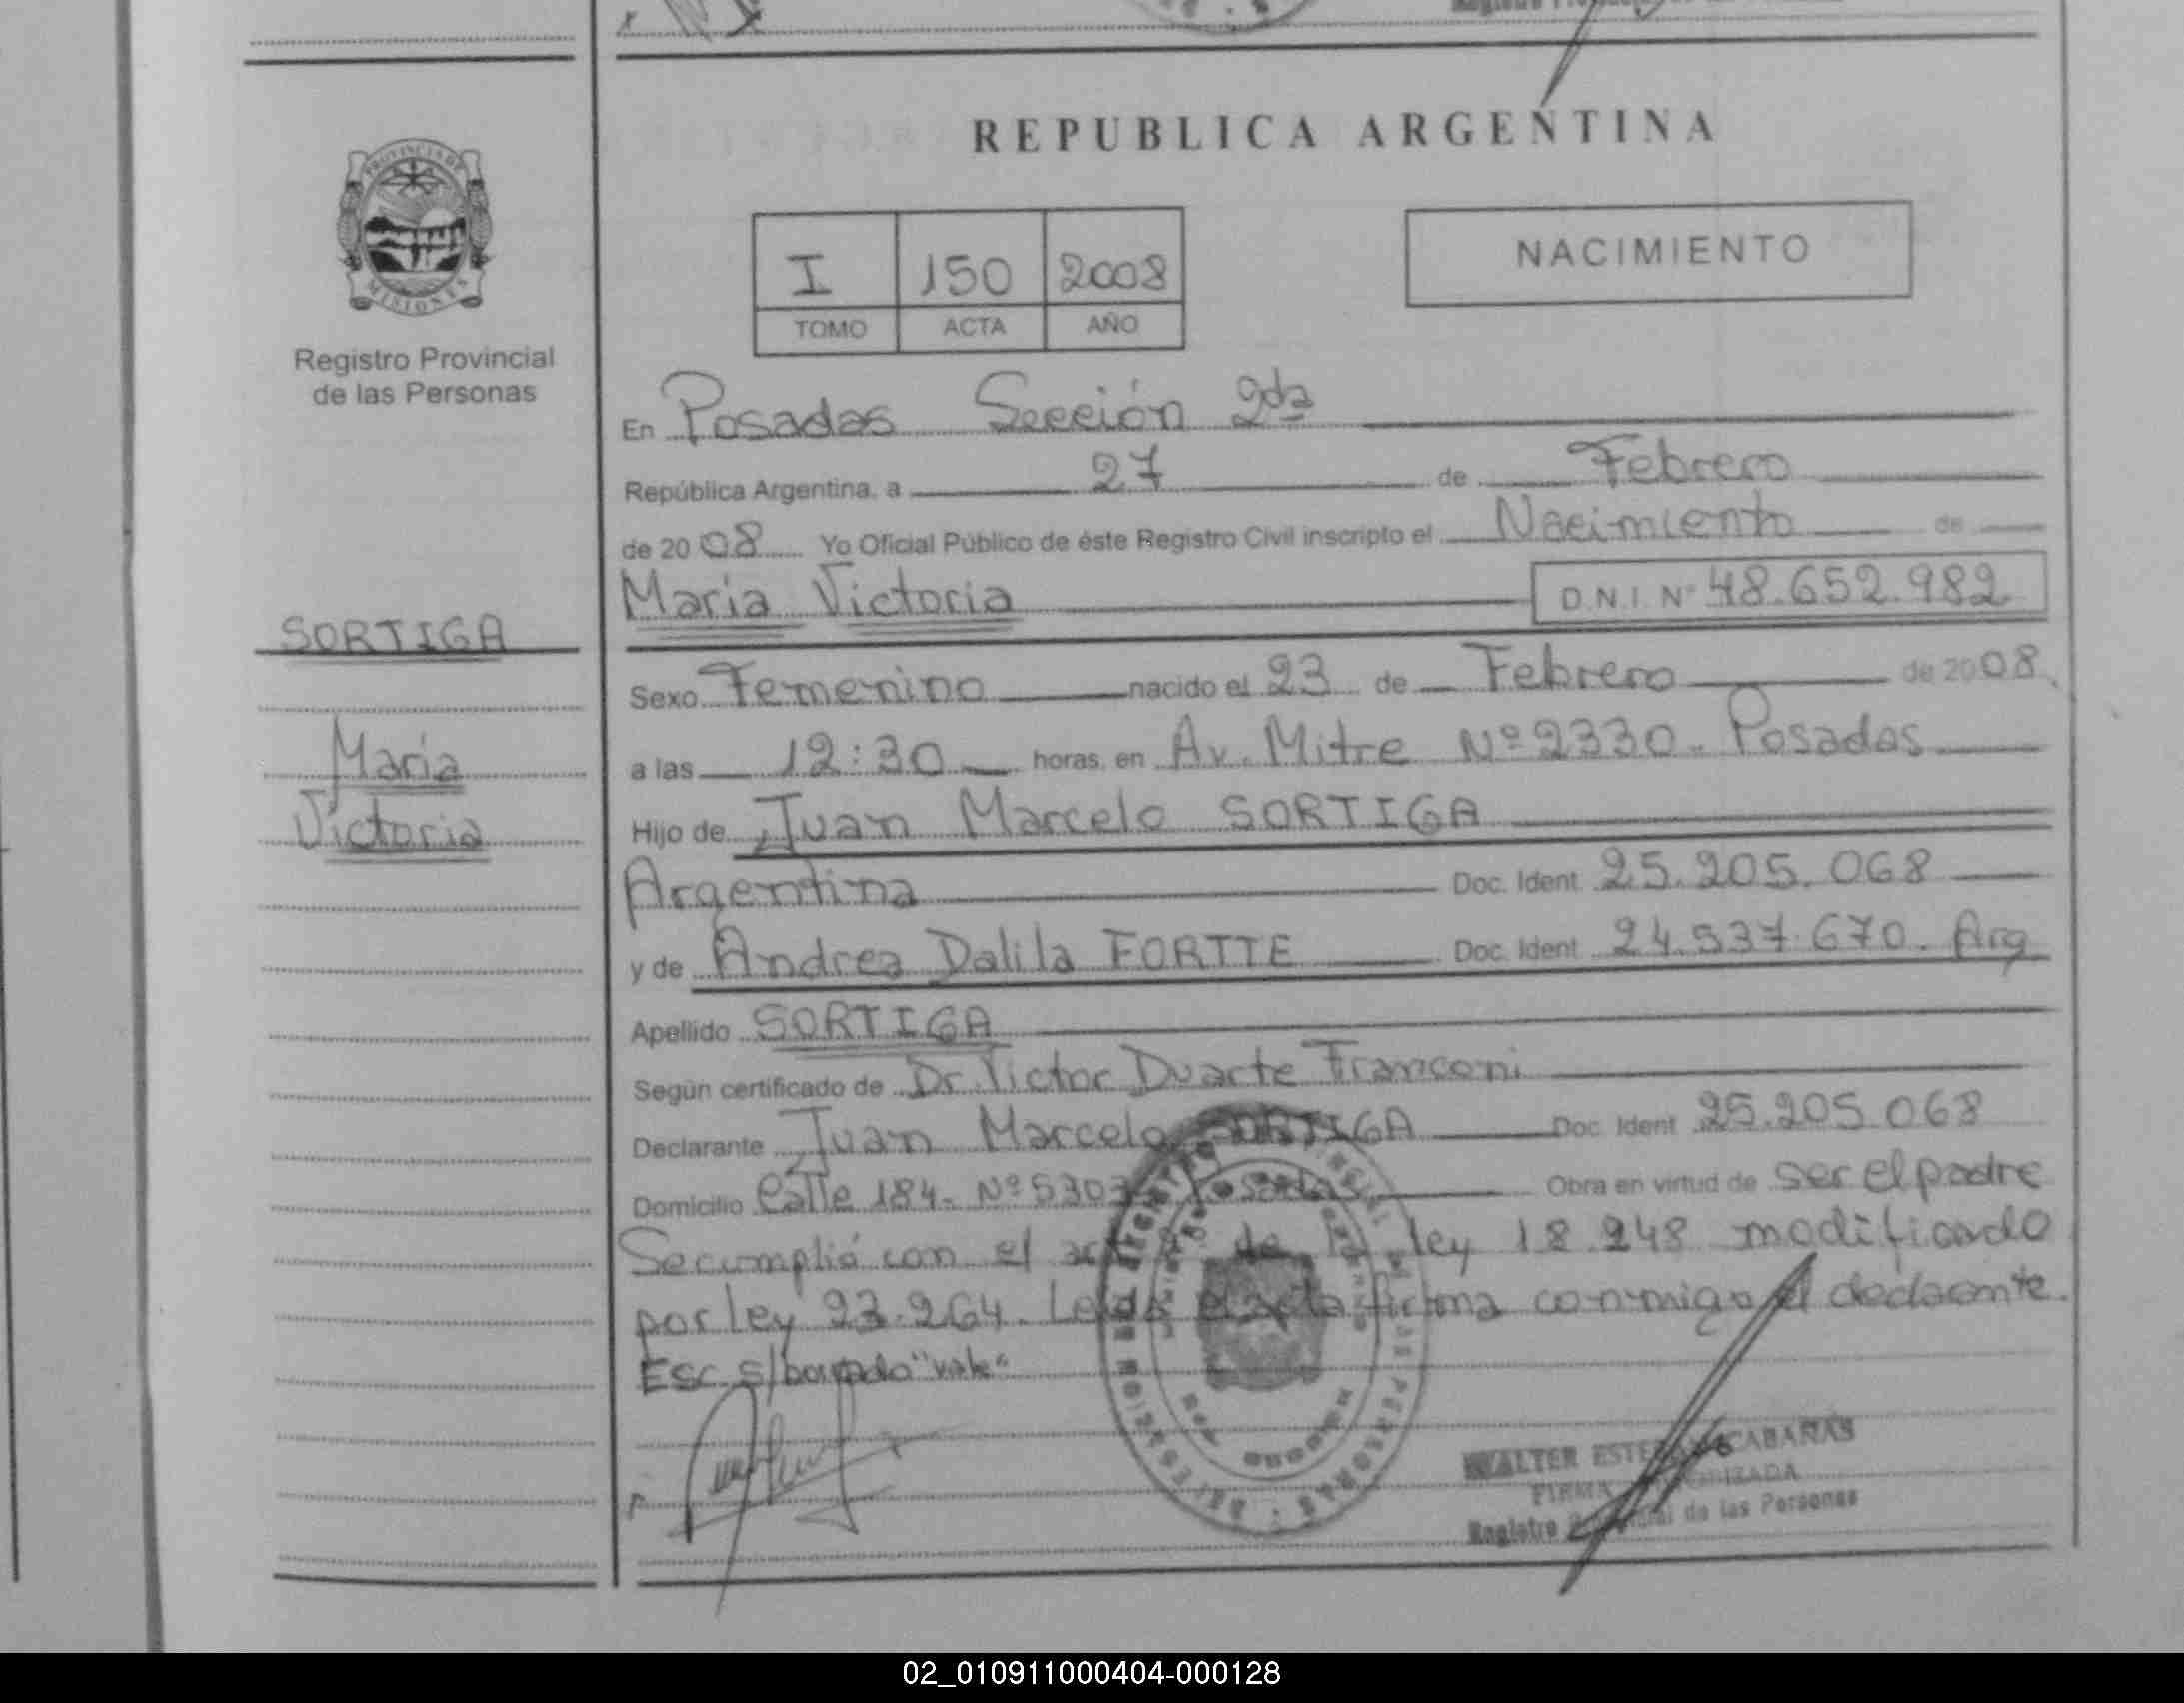 REPUBLICA ARGENTINA
PROVINCIA DE
MISIONES
Registro Provincial
de las Personas
I 150 2008
TOMO ACTA AÑO
NACIMIENTO
En Posadas Sección 2da
República Argentina, a 27 de Febrero
de 2008 Yo Oficial Público de éste Registro Civil inscripto el Nacimiento de
María Victoria D.N.I. Nº 48.652.982
SORTIGA
María
Victoria
Sexo Femenino nacido el 23 de Febrero de 2008.
a las 12:30 horas, en Av. Mitre Nº 2330. Posadas
Hijo de Juan Marcelo SORTIGA
Argentina Doc. Ident. 25.205.068
y de Andrea Dalila FORTTE Doc. Ident. 24.537.670. Arg
Apellido SORTIGA
Según certificado de Dr. Victor Duarte Franconi
Declarante Juan Marcelo SORTIGA Doc. Ident. 25.205.068
Domicilio Calle 184- Nº 5303 Posadas Obra en virtud de ser el padre
Se cumplió con el de la ley 18.248 modificado
por ley 23.264. Leída el acta firma conmigo el declarante.
Esc. s/borrado "vale"
WALTER ESTEBAN CABAÑAS
FIRMA AUTORIZADA
Registro Provincial de las Personas
02_010911000404-000128